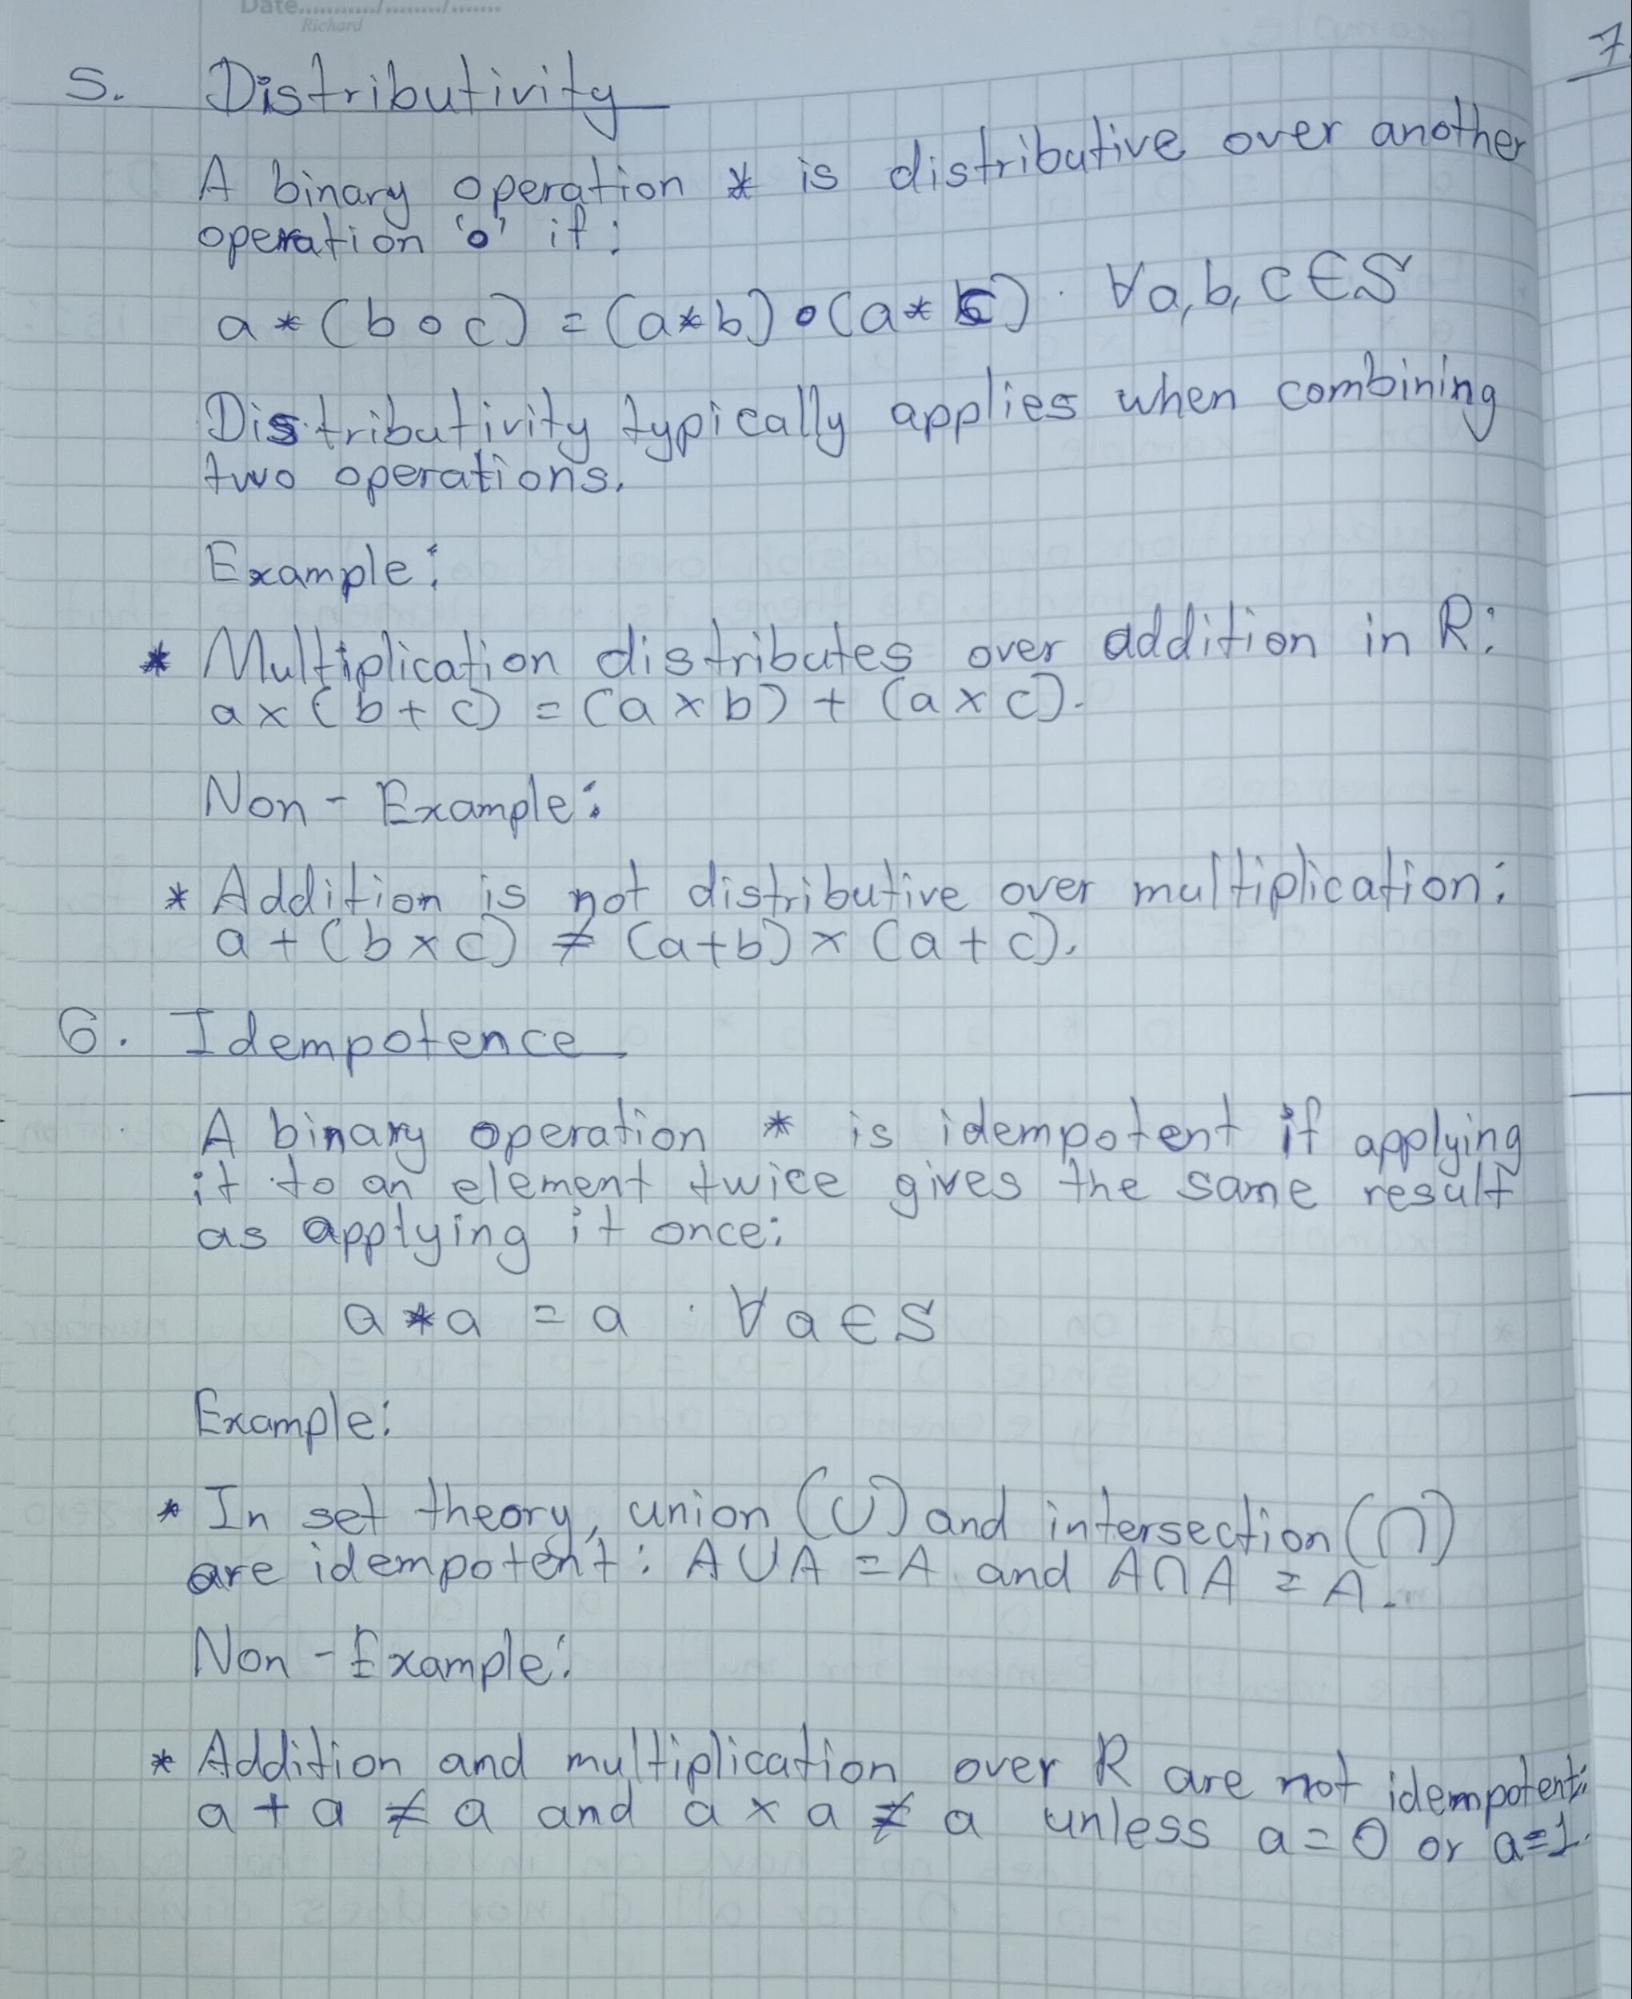 Date............/........./.......
Richard
7.
5. Distributivity
A binary operation * is distributive over another
operation 'o' if:
a * (b o c) = (a * b) o (a * c) . ∀a, b, c ∈ S
Distributivity typically applies when combining
two operations.
Example:
* Multiplication distributes over addition in R:
a × (b + c) = (a × b) + (a × c).
Non - Example:
* Addition is not distributive over multiplication:
a + (b × c) ≠ (a + b) × (a + c).
6. Idempotence
A binary operation * is idempotent if applying
it to an element twice gives the same result
as applying it once:
a * a = a . ∀ a ∈ S
Example:
* In set theory, union (∪) and intersection (∩)
are idempotent: A ∪ A = A and A ∩ A = A.
Non - Example:
* Addition and multiplication over R are not idempotent:
a + a ≠ a and a × a ≠ a unless a = 0 or a = 1.